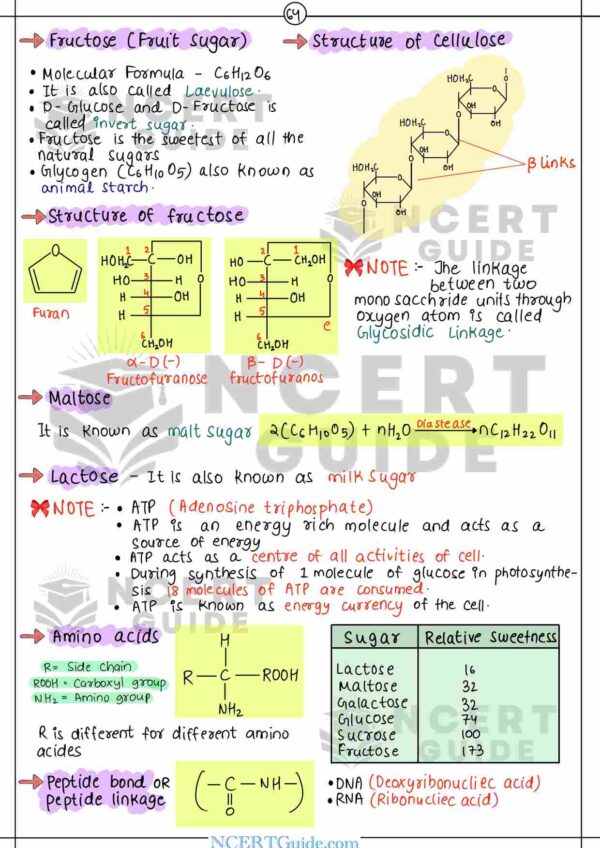 64
Fructose (Fruit Sugar)
• Molecular Formula - C6H12O6
• It is also called Laevulose.
• D-Glucose and D-Fructose is
called invert sugar.
• Fructose is the sweetest of all the
natural sugars
• Glycogen (C6H10O5) also known as
animal starch.
Structure of Cellulose
HOH2C
O
O
OH
OH
HOH2C
O
O
OH
OH
HOH2C
O
O
OH
OH
β links
Structure of fructose
O
Furan
1 2
HOH2C—C—OH
HO—3—H
H—4—OH
H—5
O
6
CH2OH
α-D(-)
Fructofuranose
2 1
HO—C—CH2OH
HO—3—H
H—4—OH
H—5
O
e
6
CH2OH
β-D(-)
fructofuranos
NOTE :- The linkage
between two
monosacchride units through
oxygen atom is called
Glycosidic Linkage.
Maltose
It is known as malt sugar 2(C6H10O5) + nH2O Diastease nC12H22O11
Lactose - It is also known as milk sugar
NOTE :- • ATP (Adenosine triphosphate)
• ATP is an energy rich molecule and acts as a
source of energy
• ATP acts as a centre of all activities of cell.
• During synthesis of 1 molecule of glucose in photosynthe-
sis 18 molecules of ATP are consumed.
• ATP is known as energy currency of the cell.
Amino acids
R= Side chain
ROOH = Carboxyl group
NH2 = Amino group
H
R—C—ROOH
NH2
R is different for different amino
acides
Sugar Relative sweetness
Lactose 16
Maltose 32
Galactose 32
Glucose 74
Sucrose 100
Fructose 173
Peptide bond OR
peptide linkage
(—C—NH—)
O
• DNA (Deoxyribonucliec acid)
• RNA (Ribonucliec acid)
NCERT
GUIDE
NCERT
GUIDE
NCERT
GUIDE
NCERT
GUIDE
NCERT
GUIDE
NCERTGuide.com